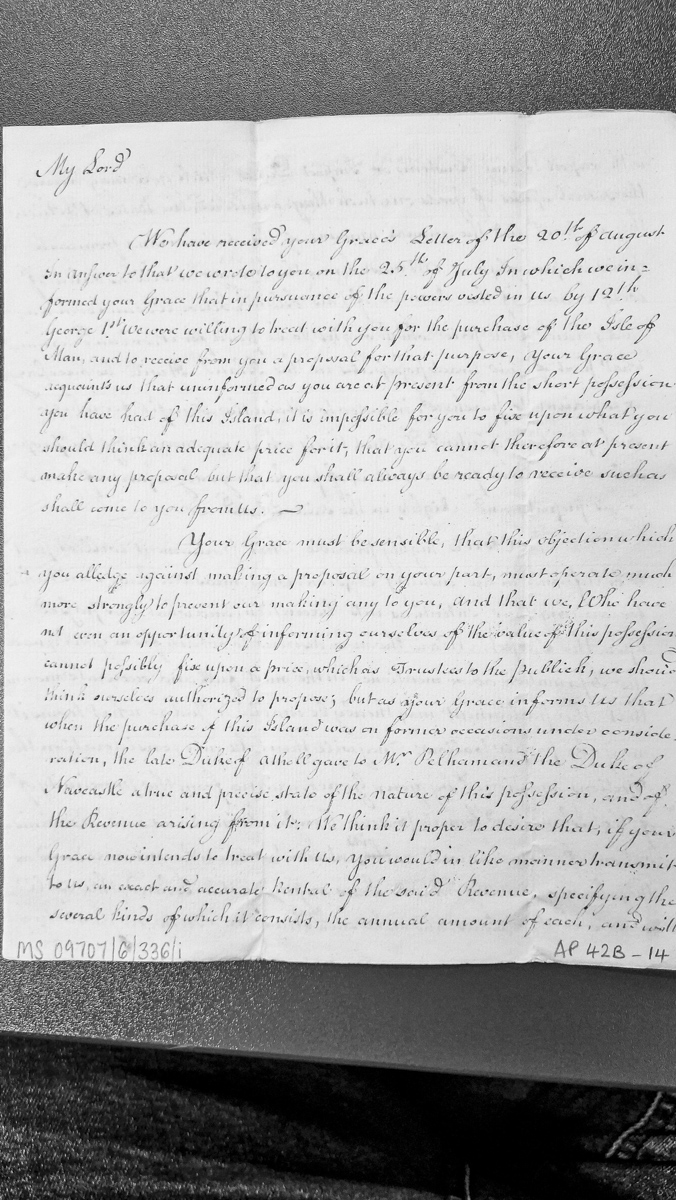 My Lord
We have received your Grace's Letter of the 20th of August
In answer to that we wrote to you on the 25th of July In which we in=
formed your Grace that in pursuance of the powers vested in us by 12th
George 1st we were willing to treat with you for the purchase of the Isle of
Man, and to receive from you a proposal for that purpose, Your Grace
acquaints us that uninformed as you are at present from the short possession
you have had of this Island, it is impossible for you to fix upon what you
should think an adequate price for it, that you cannot therefore at present
make any proposal but that you shall always be ready to receive such as
shall come to you from us. —
Your Grace must be sensible, that this objection which
you alledge against making a proposal on your part, must operate much
more strongly to prevent our making any to you, and that we, Who have
not even an opportunity of informing ourselves of the value of this possession
cannot possibly fix upon a price, which as Trustees to the Publick, we should
think ourselves authorized to propose; but as Your Grace informs Us that
when the purchase of this Island was on former occasions under conside
ration, the late Duke of Atholl gave to Mr Pelham and the Duke of
Newcastle a true and precise state of the nature of this possession, and of
the Revenue arising from it; We think it proper to desire that, if your
Grace now intends to treat with Us, You would in like manner transmit
to us, an exact and accurate Rental of the said Revenue, specifying the
several kinds of which it consists, the annual amount of each, and will
MS 09707/6/336/i
AP 42B - 14